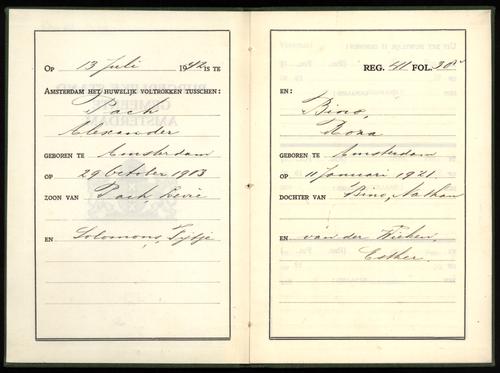 OP 13 Juli 1942 IS TE
AMSTERDAM HET HUWELIJK VOLTROKKEN TUSSCHEN:
Pach
Alexander
GEBOREN TE Amsterdam
OP 29 October 1913
ZOON VAN Pach, Levie
EN Salomons, Tijtje
REG. 4H FOL. 30
EN:
Bino,
Roza
GEBOREN TE Amsterdam
OP 11 Januari 1921.
DOCHTER VAN Bino, Nathan
EN van der Wieken,
Esther.